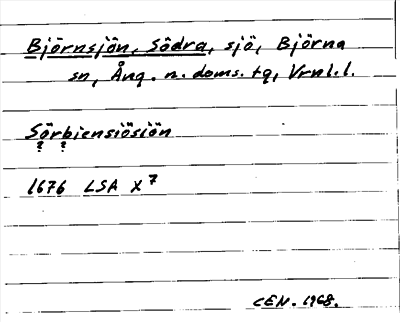 Björnsjön, Södra, sjö, Björna
sn, Ång. n. doms. tg, Vrnl.l.
Sörbiensiösiön
? ?
1676 LSA X 7
CEN. 1968.